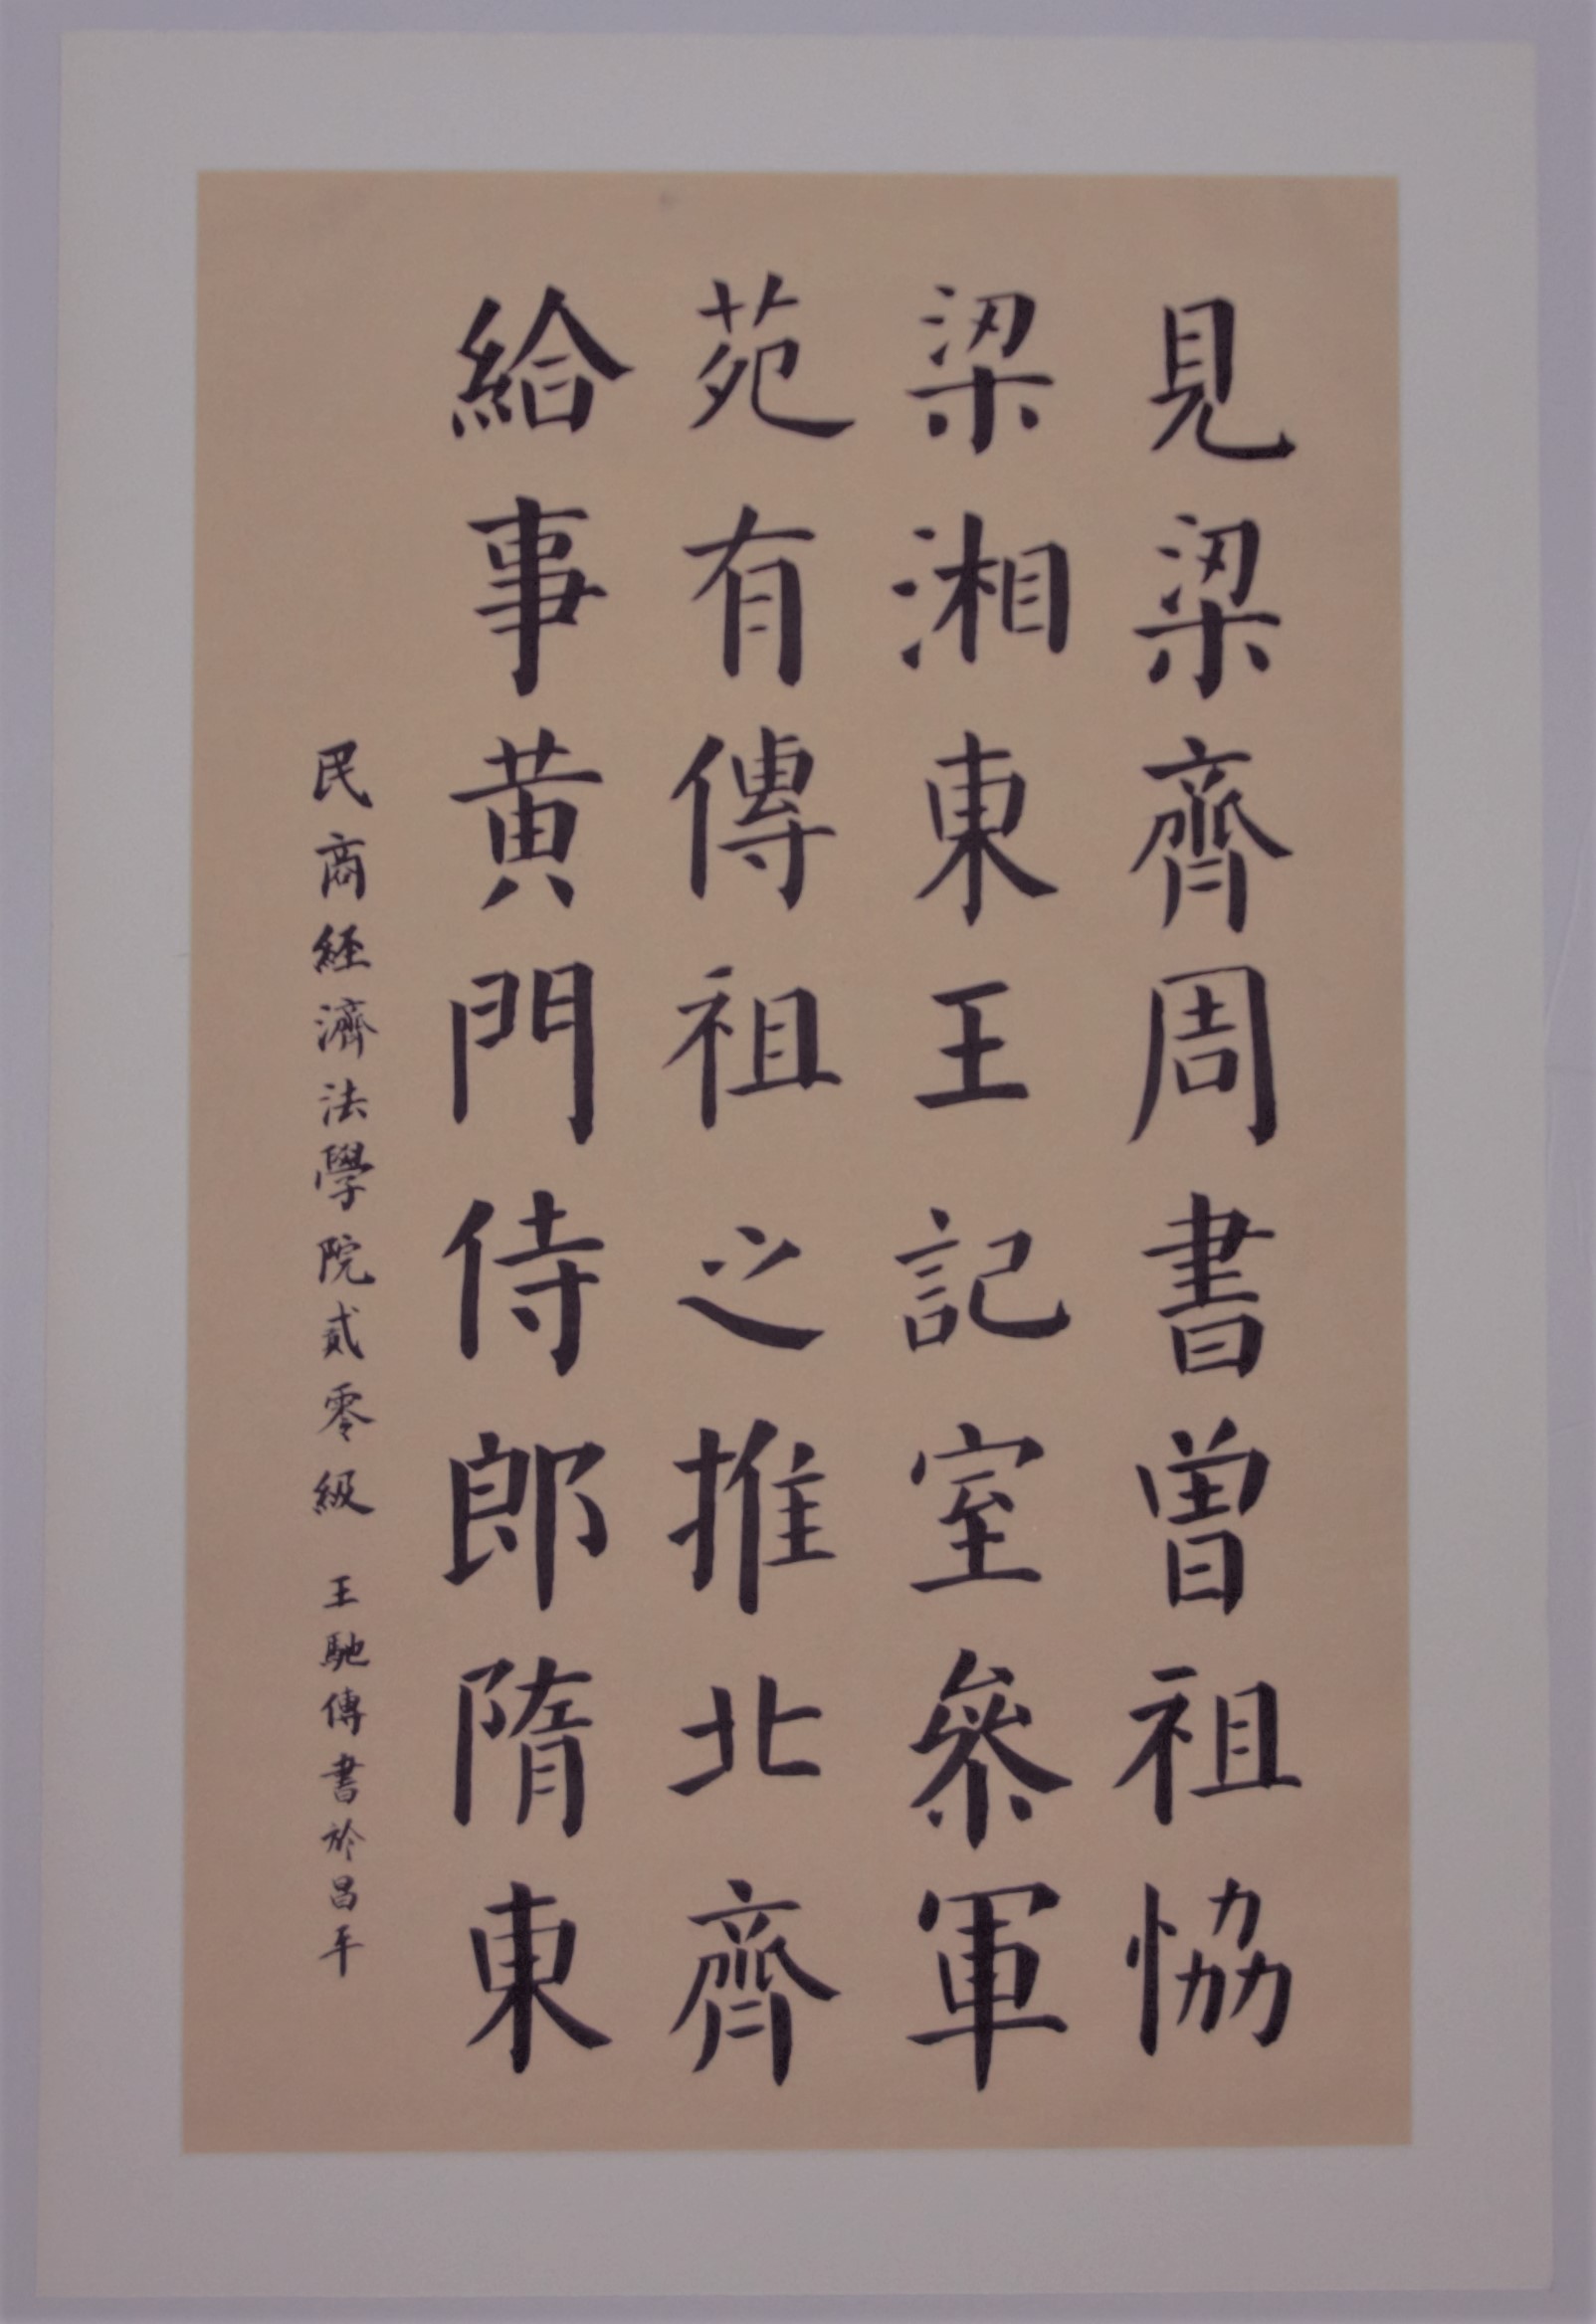 見梁齊周書曾祖恊
梁湘東王記室叅軍
苑有傳祖之推北齊
給事黃門侍郎隋東
民商經濟法學院貳零級 王馳傳書於昌平